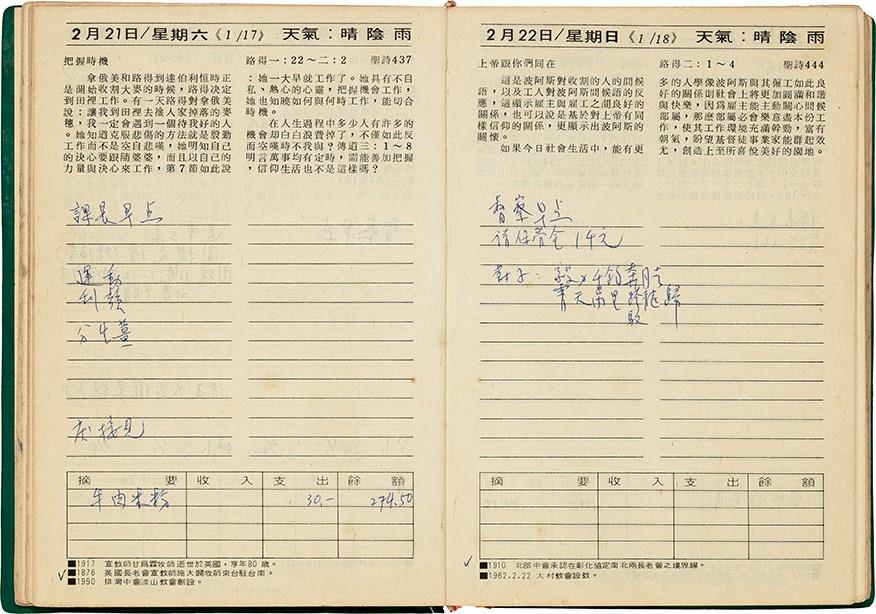 2月21日/星期六《1/17》 天氣：晴陰雨
把握時機 路得一：22～二：2 聖詩437
拿俄美和路得到達伯利恒時正
是開始收割大麥的時候，路得決定
到田裡工作。有一天路得對拿俄美
說：讓我到田裡去撿人家掉落的麥
穗，我一定會遇到一個待我好的人
。她知道克服悲傷的方法就是殷勤
工作而不是空自悲嘆，她明知自己
的決心要跟隨婆婆，而且以自己的
力量與決心來工作，第7節如此說
：她一大早就工作了。她具有不自
私、熱心的心靈，把握機會工作，
她也知曉如何與何時工作，能切合
時機。
在人生過程中多少人有許多的
機會却白白浪費掉了，不僅如此反
而空嘆時不我與？傳道三：1～8
明言萬事均有定時，需能善加把握
，信仰生活也不是這樣嗎？
課長早点
運動
分生薑
接見
摘要 收入 支出 餘額
牛肉米粉 30.- 274.50
■1917 宣教師甘爲霖牧師逝世於英國，享年80歲。
✓■1876 英國長老會宣教師施大闢牧師來台駐台南。
■1950 排灣中會涼山教會創設。
2月22日/星期日《1/18》 天氣：晴陰雨
上帝跟你們同在 路得二：1～4 聖詩444
這是波阿斯對收割的人的問候
語，以及工人對波阿斯問候語的反
應，這顯示雇主與雇工之間良好的
關係，也可以說是基於對上帝有同
樣信仰的關係，更顯示出波阿斯的
關懷。
如果今日社會生活中，能有更
多的人學像波阿斯與其僱工如此良
好的關係則社會上將更加圓滿和諧
與快樂，因爲雇主能主動關心問候
部屬，那麼部屬必會樂意盡本份工
作，使其工作環境充滿幹勁，富有
朝氣，盼望基督徒事業家能群起效
尤，創造上至所喜悅美好的園地。
督察早点
請保管金14元
對子：毅力千鈞奔月
青天萬里 龍歸
摘要 收入 支出 餘額
✓■1910 北部中會承認在彰化協定南北兩長老會之境界線。
■1962.2.22 大村教會設教。